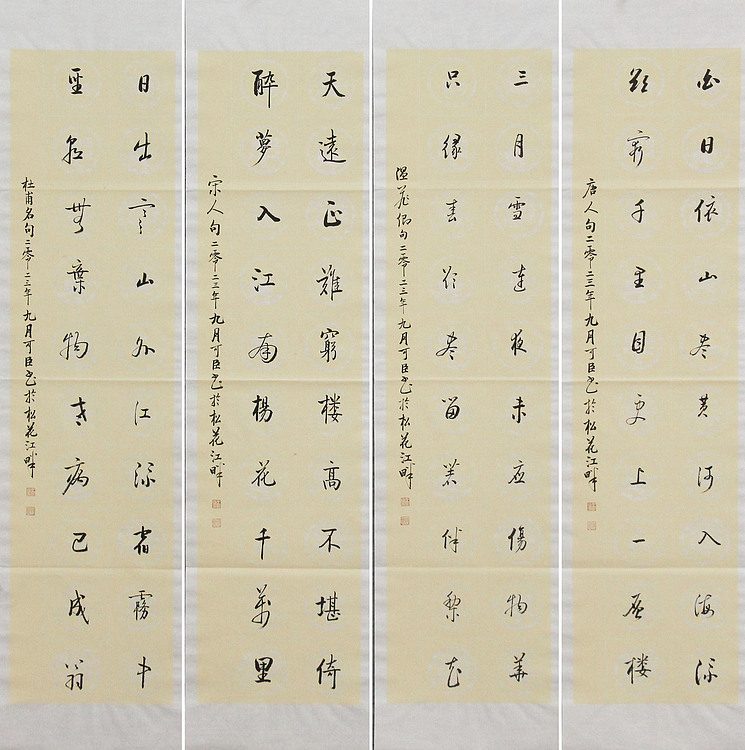 白日依山尽黄河入海流
欲穷千里目更上一层楼
唐人句二零二三年九月可臣书於松花江畔
三月雪连夜未应傷物华
只缘春欲尽留着伴梨花
温庭筠句二零二三年九月可臣书於松花江畔
天遠正難窮楼高不堪倚
醉夢入江南楊花千萬里
宋人句二零二三年九月可臣书於松花江畔
日出寒山外江流宿霧中
聖朝無棄物老病已成翁
杜甫名句二零二三年九月可臣书於松花江畔